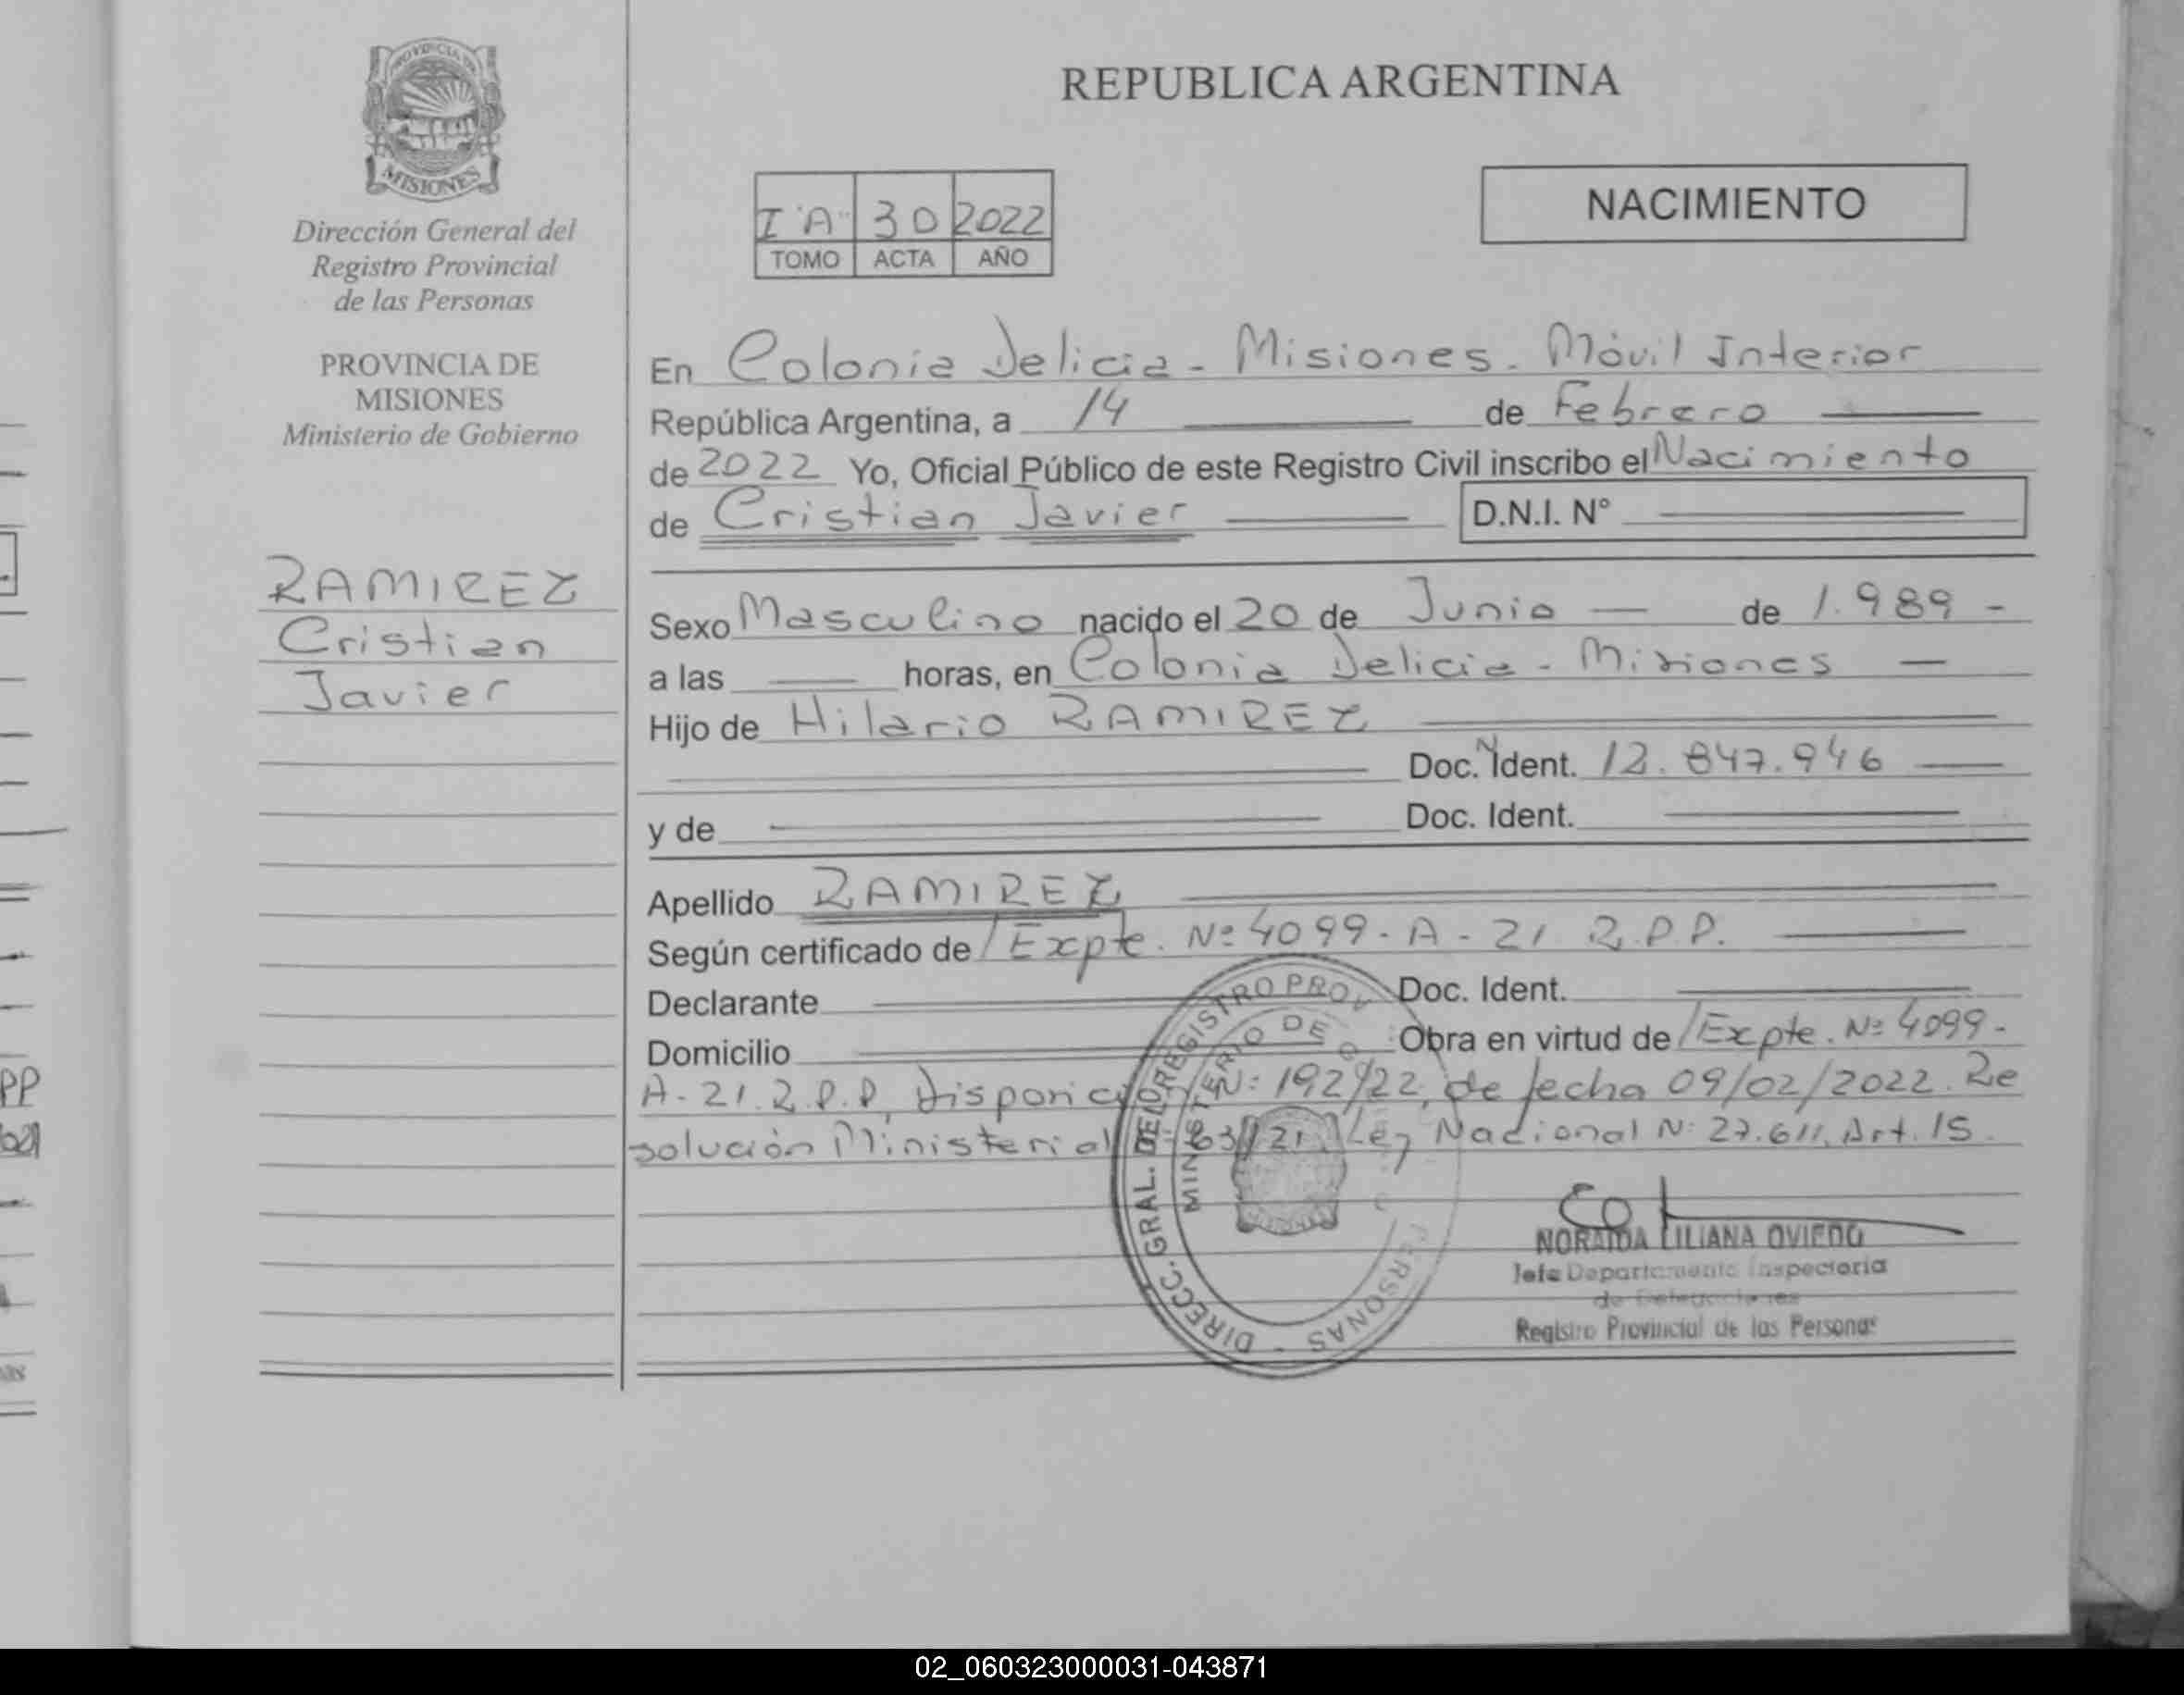 PROVINCIA DE
MISIONES
Dirección General del
Registro Provincial
de las Personas
PROVINCIA DE
MISIONES
Ministerio de Gobierno
RAMIREZ
Cristian
Javier
REPUBLICA ARGENTINA
I "A" 30 2022
TOMO ACTA AÑO
NACIMIENTO
En Colonia Delicia - Misiones - Móvil Interior
República Argentina, a 14 de Febrero
de 2022 Yo, Oficial Público de este Registro Civil inscribo el Nacimiento
de Cristian Javier D.N.I. Nº
Sexo Masculino nacido el 20 de Junio de 1.989 -
a las horas, en Colonia Delicia - Misiones
Hijo de Hilario RAMIREZ
Doc. Ident. 12.847.946
y de Doc. Ident.
Apellido RAMIREZ
Según certificado de / Expte. Nº 4099 - A - 21 R.P.P.
Declarante Doc. Ident.
Domicilio Obra en virtud de / Expte. Nº 4099 -
A - 21. R.P.P, Disposición Nº 192/22, de fecha 09/02/2022. Re
solución Ministerial 63/21, Ley Nacional Nº 27.611, Art. 15.
DIRECC. GRAL. DEL REGISTRO PROV PERSONAS
MINISTERIO DE
NORAIDA LILIANA OVIEDO
Jefe Departamento Inspectoria
de Delegaciones
Registro Provincial de las Personas
PP
02_060323000031-043871